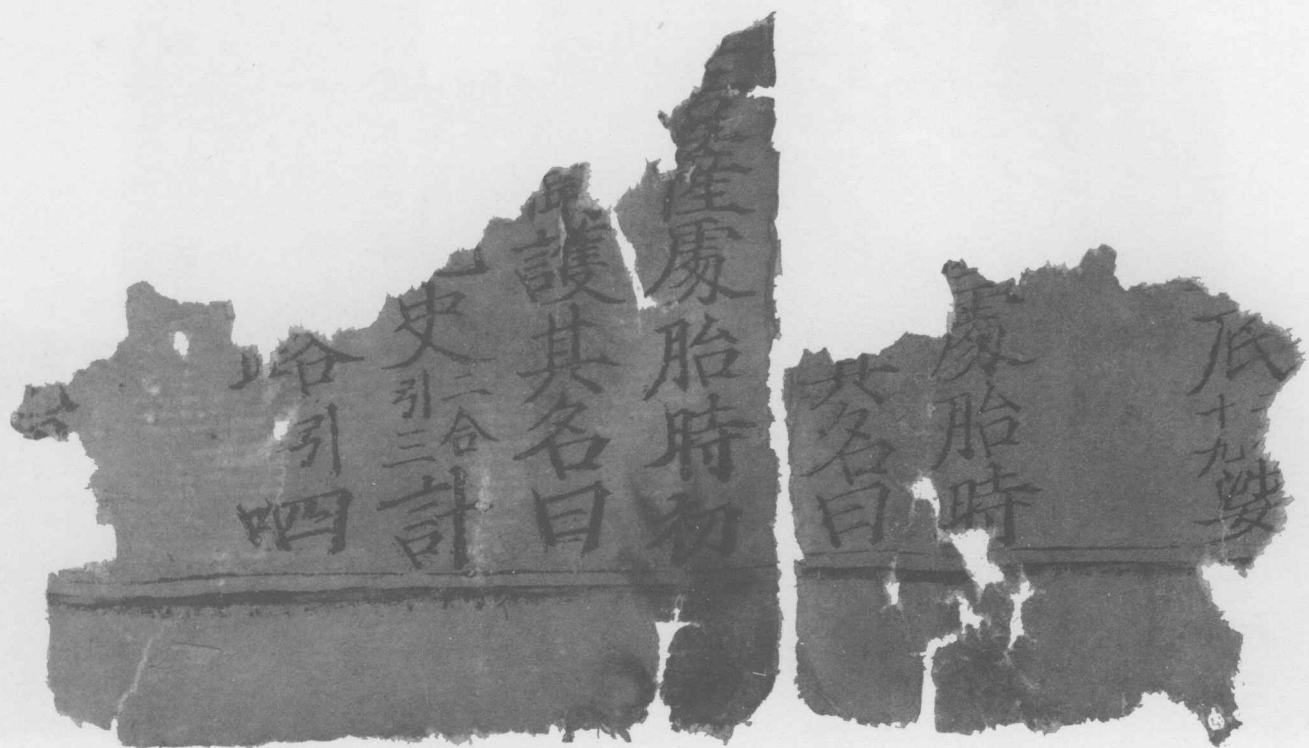 底十九
處胎時
其名曰
產處胎時初
護其名曰
史二合引三計
引呬